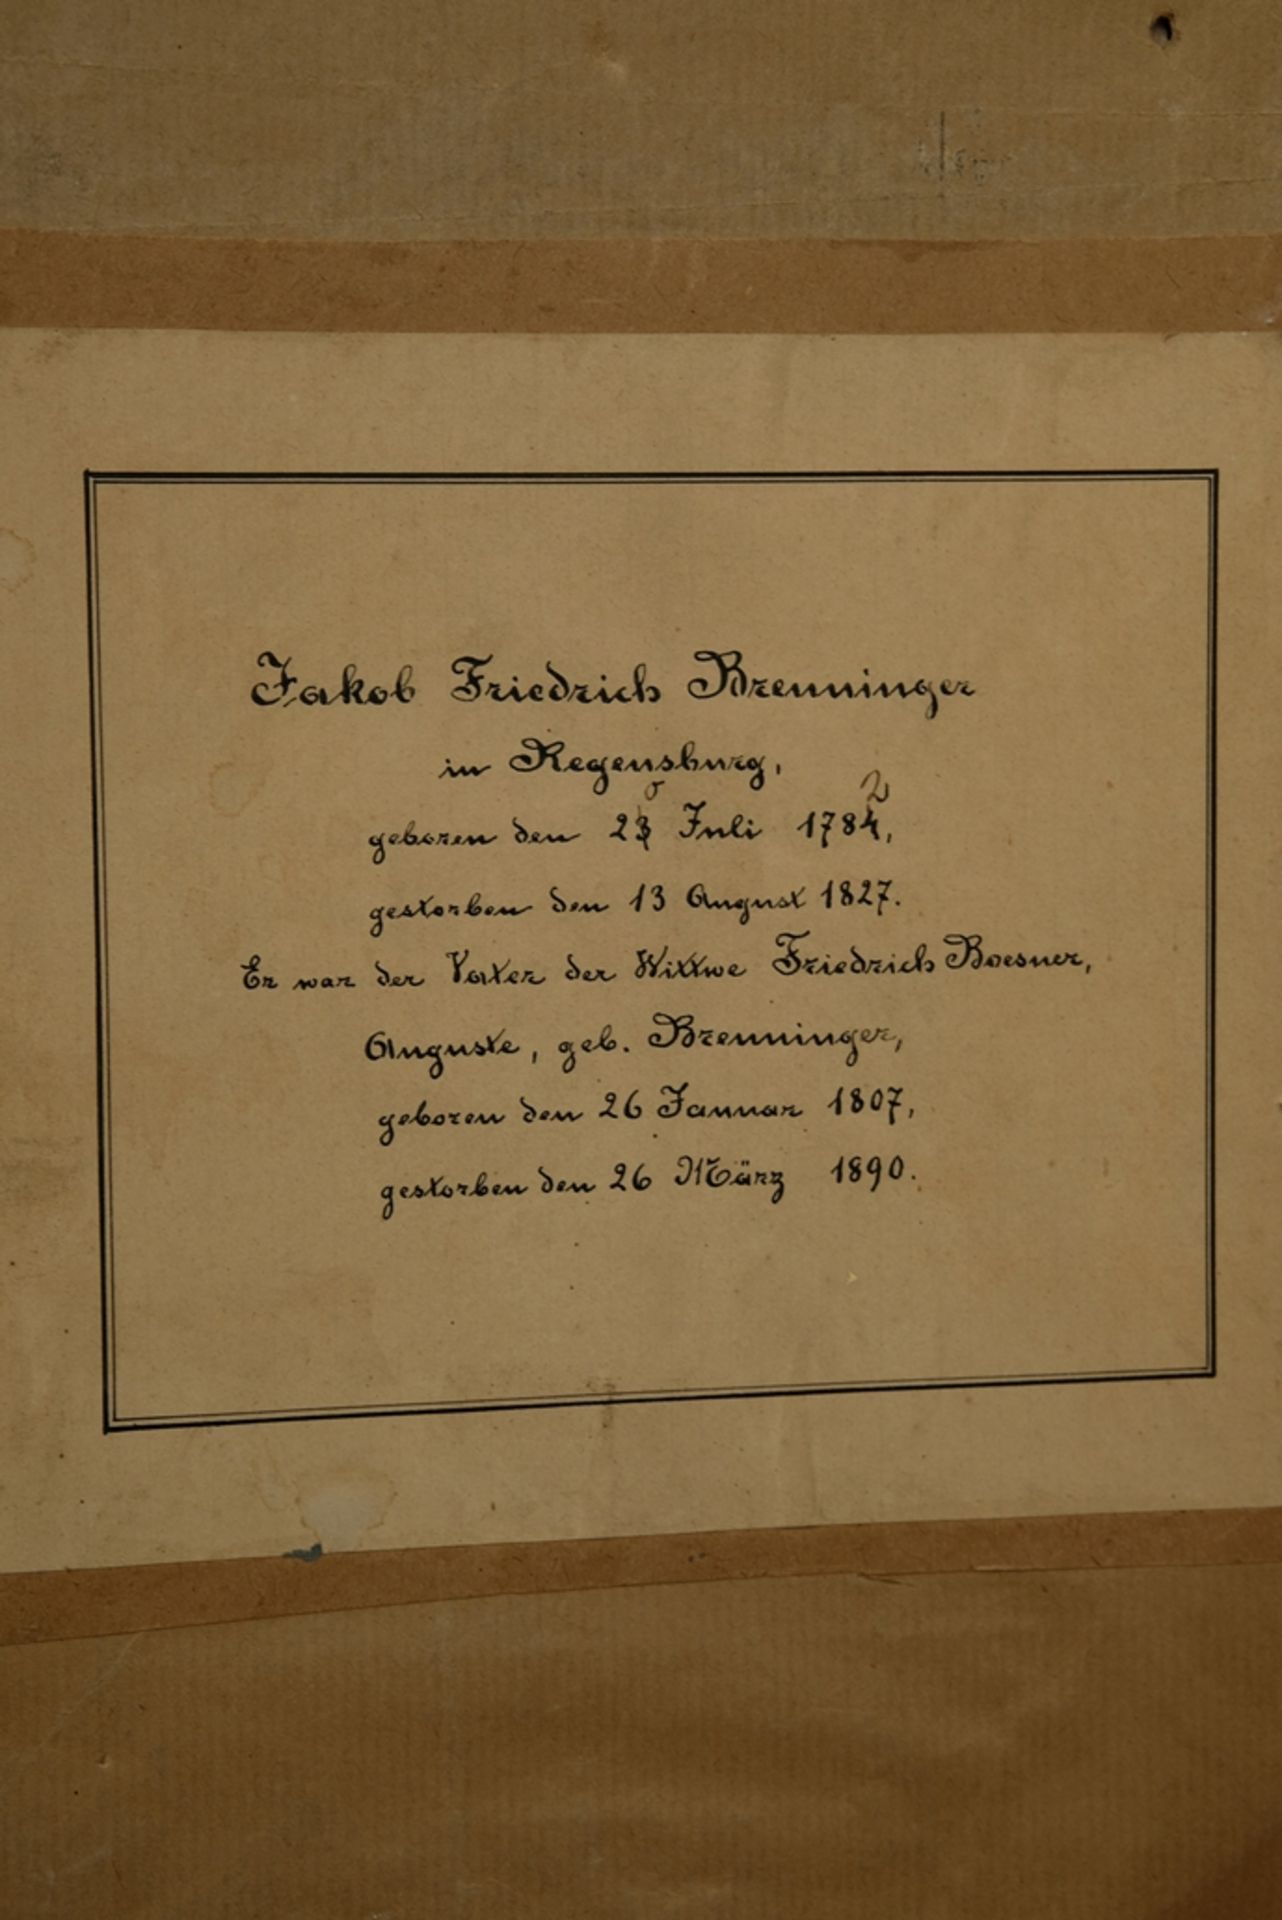 Jakob Friedrich Brenninger
in Regensburg,
geboren den 23 Juli 1784, 2
gestorben den 13 August 1827.
Er war der Vater der Wittwe Friedrich Boesner,
Auguste, geb. Brenninger,
geboren den 26 Januar 1807,
gestorben den 26 März 1890.